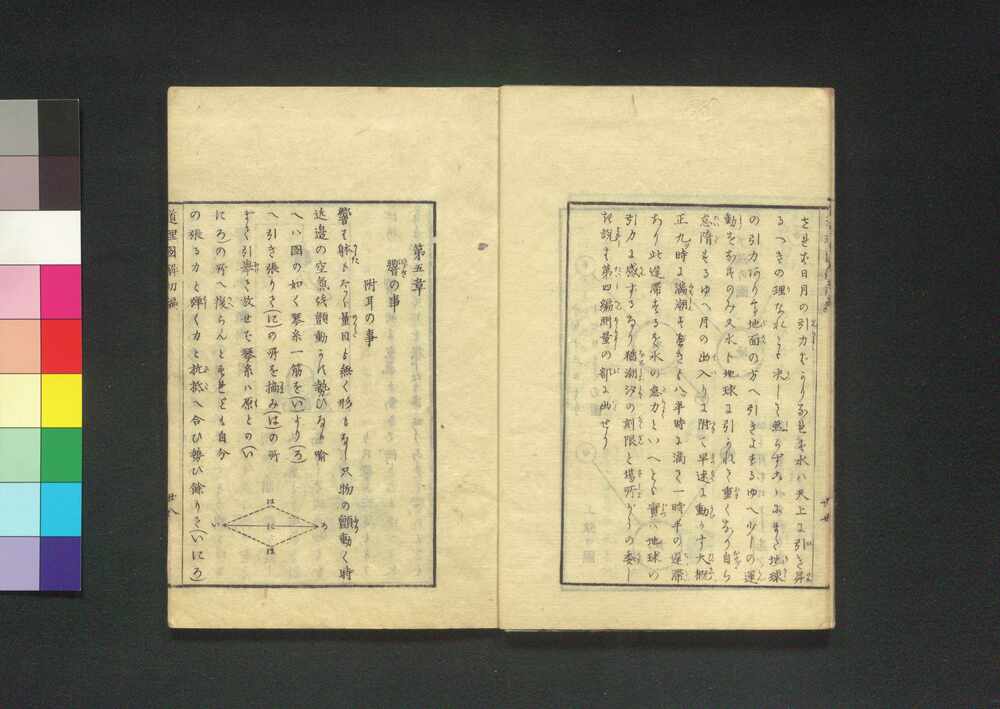 されば日月の引力をこうむりなば水ハ天上に引き昇
るべきの理なれども決して然らずなにぶんまた地球
の引力ありて地面の方へ引きよするゆへ少しの運
動をなすのみ又水も地球に引かれて重くなり自ら
怠惰するゆへ月の出入りに附て早速に動かず大概
正九時に満潮すべきも八半時に満て一時半の遅滞
あり此遅滞するを水の怠力といへども實ハ地球の
引力に感ずるなり猶潮汐の刻限と場所がらの委し
説ハ第四編測量の部に出せり
第五章
響の事
附耳の事
響も躰もなく量目も無く形もなし只物の顫動く時
近邊の空氣紋顫動するの勢ひなり喩
へハ圖の如く琴糸一筋を(い)より(ろ)
へ引き張り(に)の所を摘み(は)の所
まで引擧き放せば琴糸ハ原との(い
にろ)の所へ復らんとすれども自分
の張る力と彈く力と抗抵へ合ひ勢ひ餘りて(いにろ)
は
い
に
ろ
ほ
道理圖解初編
廿八